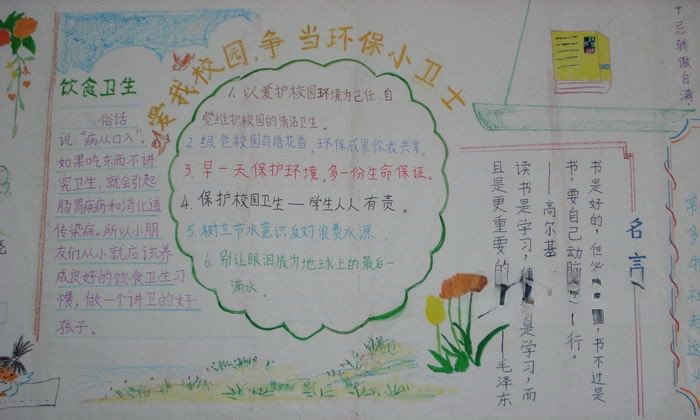 爱我校园，争当环保小卫士
饮食卫生
俗话
说：“病从口入”，
如果吃东西不讲
究卫生，就会引起
肠胃疾病和消化道
传染病。所以小朋
友们从小就应该养
成良好的饮食卫生习
惯，做一个讲卫的好
孩子。
1. 以爱护校园环境为己任，自
觉维护校园的清洁卫生。
2. 绿色校园鸟语花香，环保成果你我共享。
3. 早一天保护环境，多一份生命保证。
4. 保护校园卫生——学生人人有责。
5. 树立节水意识反对浪费水源
6. 别让眼泪成为地球上的最后一
滴水。
名言
书是好的，但必，书不过是
书，要自己动脑一行。
——高尔基
读书是学习，使是学习，而
且是更重要的
——毛泽东
十忌骄傲自满